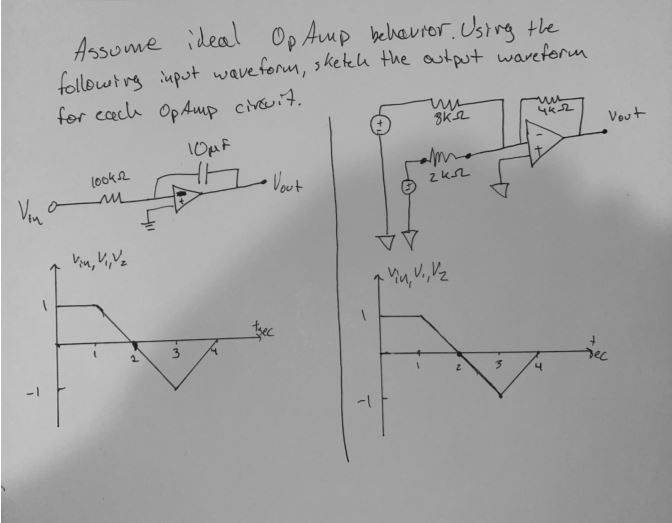 Assume ideal OpAmp behavior. Using the
following input waveform, sketch the output waveform
for each OpAmp circuit.
10μF
100kΩ
Vin
Vout
-
+
Vin, V1, V2
1
1
2
3
4
t sec
-1
8kΩ
4kΩ
Vout
2kΩ
-
+
Vin, V1, V2
1
1
2
3
4
t
sec
-1